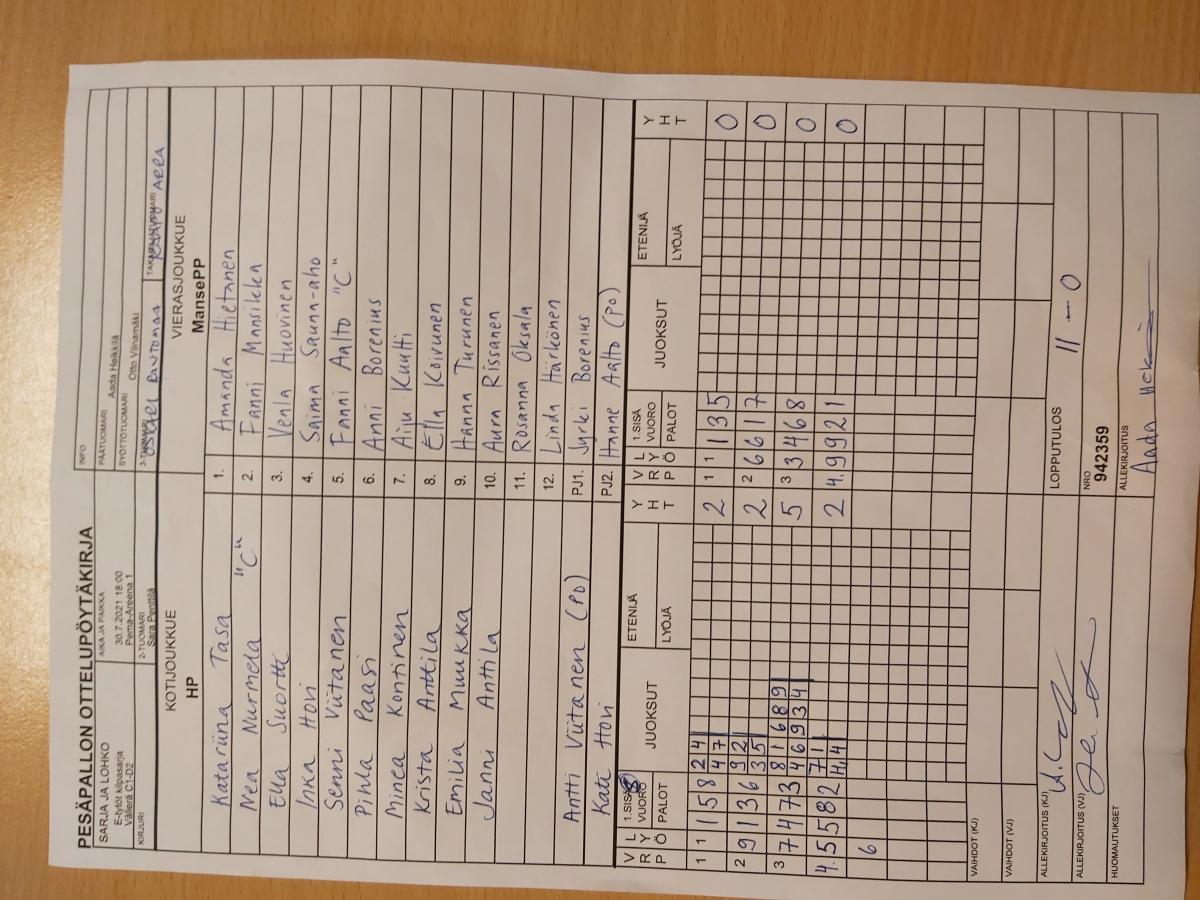 PESÄPALLON OTTELUPÖYTÄKIRJA
SARJA JA LOHKO
E-tytöt kilpasarja
Välierä C1-D2
AIKA JA PAIKKA
30.7.2021 18:00
Pema-Areena 1
INFO
PÄÄTUOMARI Aada Heikkilä
SYÖTTÖTUOMARI Otto Viinamäki
KIRJURI
2-TUOMARI
Sara Penttilä
KOTIJOUKKUE
HP
VIERASJOUKKUE
MansePP
Katariina Tasa 1. Amanda Hietanen
Nea Nurmela "C" 2. Fanni Mansikka
Ella Suortti 3. Venla Huovinen
Inka Hovi 4. Saima Sauna-aho
Senni Viitanen 5. Fanni Aalto "C"
Pihla Paasi 6. Anni Borenius
Minea Kontinen 7. Ainu Kuutti
Krista Anttila 8. Ella Koivunen
Emilia Muukka 9. Hanna Turunen
Janni Anttila 10. Aura Rissanen
11. Rosanna Oksala
12. Linda Härkönen
Antti Viitanen (PO) PJ1. Jyrki Borenius
Kati Hovi PJ2. Hanne Aalto (PO)
V R L Y Ö P 1.SISÄ VUORO PALOT JUOKSUT ETENIJÄ LYÖJÄ Y H T V R L Y Ö P 1.SISÄ VUORO PALOT JUOKSUT ETENIJÄ LYÖJÄ Y H T
1 1 1 5 8 2 4 2 1 1 1 3 5 0
4 7
2 9 1 3 6 9 2 2 2 6 6 1 7 0
3 5
3 7 4 7 3 8 1 6 8 9 5 3 3 4 6 8 0
4 6 9 3 4
4. 5 5 8 2 7 1 2 4. 9 9 2 1 0
4 4
6
VAIHDOT (KJ)
VAIHDOT (VJ)
ALLEKIRJOITUS (KJ)
LOPPUTULOS 11 - 0
ALLEKIRJOITUS (VJ)
NRO
942359
HUOMAUTUKSET
ALLEKIRJOITUS
Aada